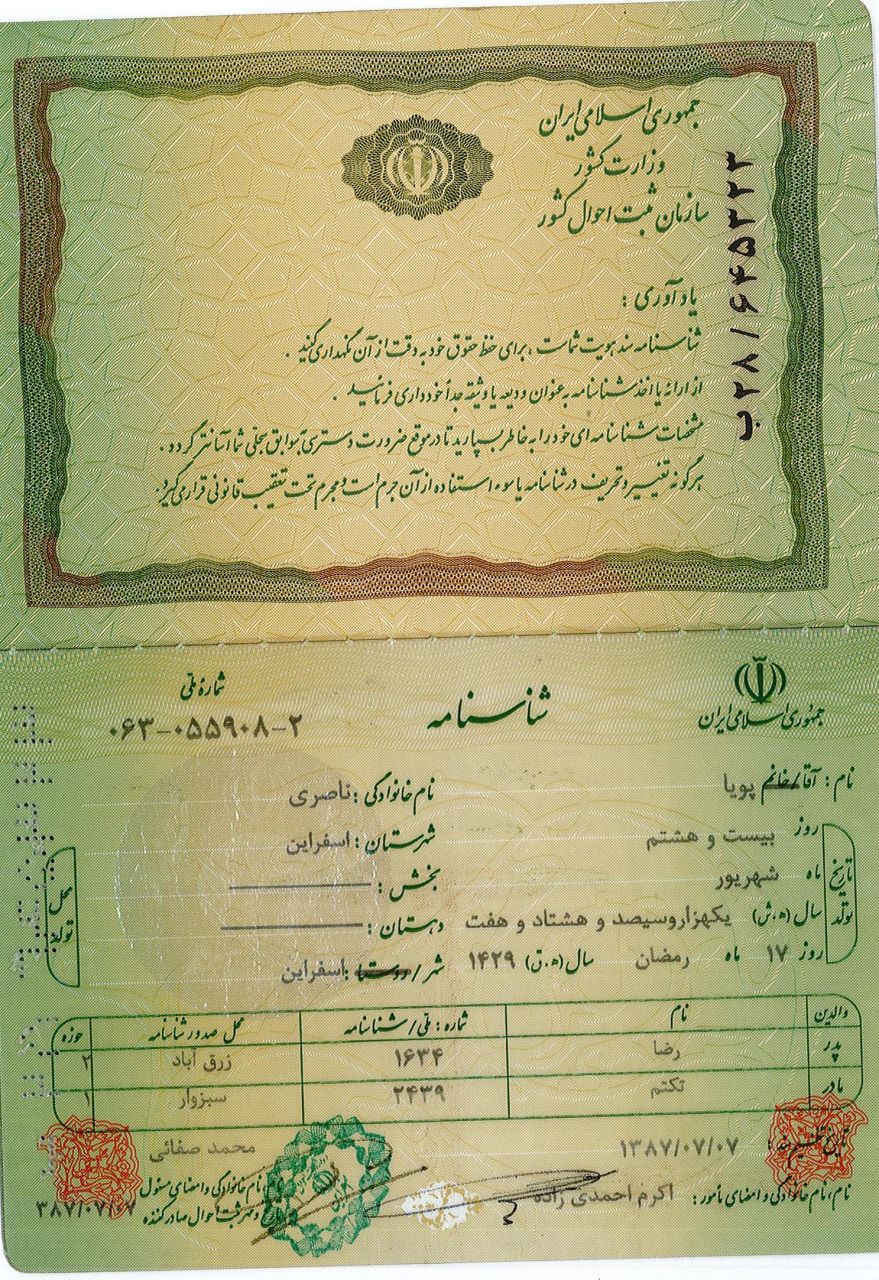 جمهوری اسلامی ایران
وزارت کشور
سازمان ثبت احوال کشور
ب۲۸/۶۴۵۳۲۳
یادآوری :
شناسنامه سند هویت شماست ، برای حفظ حقوق خود به دقت از آن نگهداری کنید .
از ارائه یا اخذ شناسنامه به عنوان ودیعه یا وثیقه جداً خودداری فرمائید .
مشخصات شناسنامه ای خود را به خاطر بسپارید تا در موقع ضرورت دسترسی به سوابق سجلی شما آسانتر گردد .
هرگونه تغییر و تحریف در شناسنامه یا سوء استفاده از آن جرم است و مجرم تحت تعقیب قانونی قرار می گیرد .
جمهوری اسلامی ایران
شناسنامه
شماره ملی
۰۶۳-۰۵۵۹۰۸-۲
نام : آقا/خانم پویا نام خانوادگی : ناصری
تاریخ تولد
روز بیست و هشتم
ماه شهریور
سال (ه.ش) یکهزاروسیصد و هشتاد و هفت
روز ۱۷ ماه رمضان سال (ه.ق) ۱۴۲۹
محل تولد
شهرستان : اسفراین
بخش :
دهستان :
شهر/روستا : اسفراین
والدین نام شماره : ملی/شناسنامه محل صدور شناسنامه حوزه
پدر رضا ۱۶۳۴ زرق آباد ۲
مادر تکتم ۲۴۳۹ سبزوار ۱
تاریخ تنظیم سند : ۱۳۸۷/۰۷/۰۷
نام ، نام خانوادگی و امضای مأمور : اکرم احمدی زاده
محمد صفائی
نام ، نام خانوادگی و امضای مسئول
و مهر ثبت احوال صادرکننده
۳۸۷/۰۷/۰۷